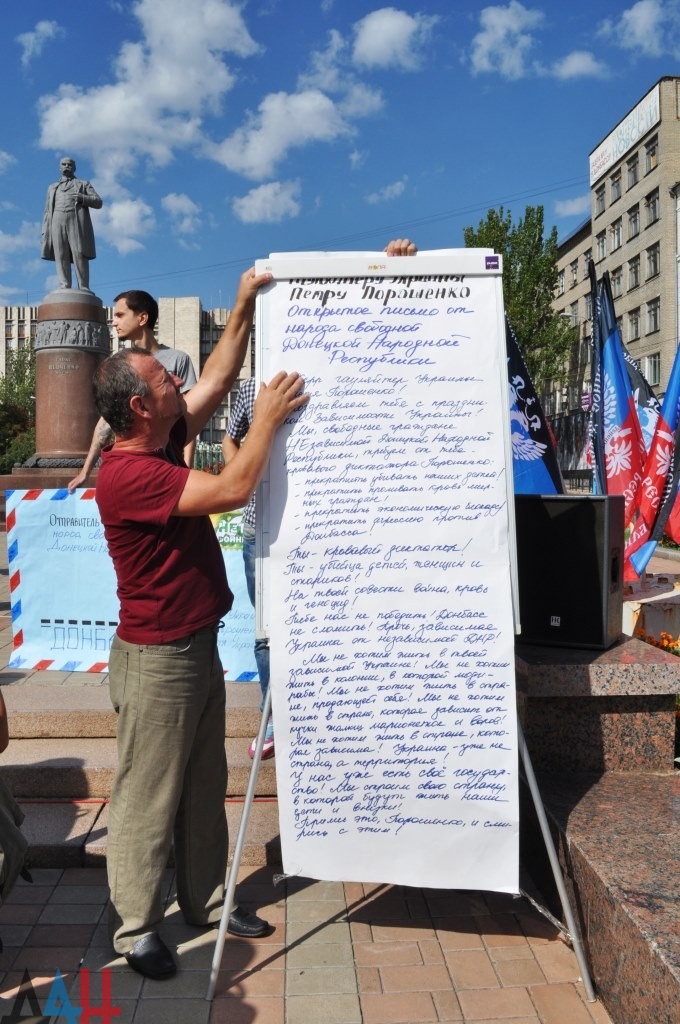 Петру Порошенко
Открытое письмо от
народа свободной
Донецкой Народной
Республики
гауляйтер Украины
Порошенко!
тебе с праздни-
Зависимости Украины!
Мы, свободные граждане
НЕзависимой Донецкой Народной
Республики, требуем от тебя -
кровавого диктатора Порошенко:
- прекратить убивать наших детей!
- прекратить проливать кровь мир-
ных граждан!
- прекратить экономическую блокаду!
- прекратить агрессию против
Донбасса!
Ты - кровавый диктатор!
Ты - убийца детей, женщин и
стариков!
На твоей совести война, кровь
и геноцид!
Тебе нас не победить! Донбасс
не сломить! Прочь, зависимая
Украина от независимой ДНР!
Мы не хотим жить в твоей
зависимой Украине! Мы не хотим
жить в колонии, в которой люди-
рабы! Мы не хотим жить в стра-
не, продающей себя! Мы не хотим
жить в стране, которая зависит от
кучки жалких марионеток и воров!
Мы не хотим жить в стране, кото-
рая зависима! Украина - уже не
страна, а территория!
У нас уже есть своё государ-
ство! Мы строим свою страну,
в которой будут жить наши
дети и внуки!
Прими это, Порошенко, и сми-
рись с этим!
Отправитель
народ
Донецкой
ДОНБ
ДАН